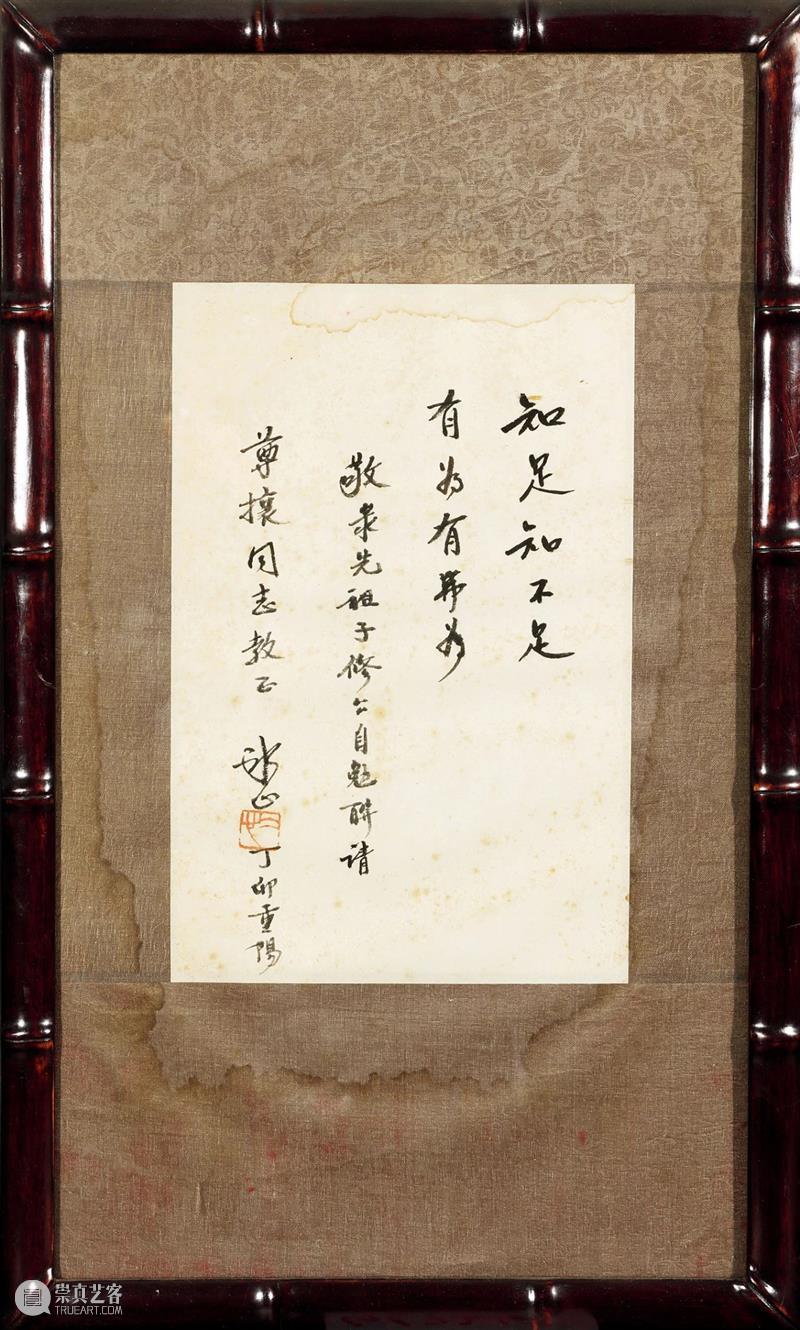 知足知不足
有为有弗为
敬录先祖子修公自勉联请
尊攘同志教正 冰心 丁卯重陽
崇真艺客
TRUEART.COM